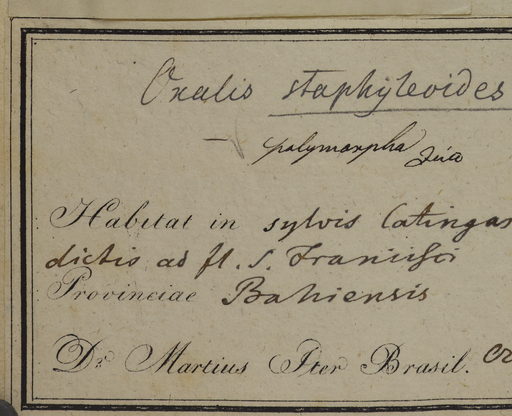 Oxalis staphyleoides
polymorpha Zucc
Habitat in sylvis Catingas
dictis ad fl. S. Francisci
Provinciae Bahiensis
Dr. Martius Iter Brasil.